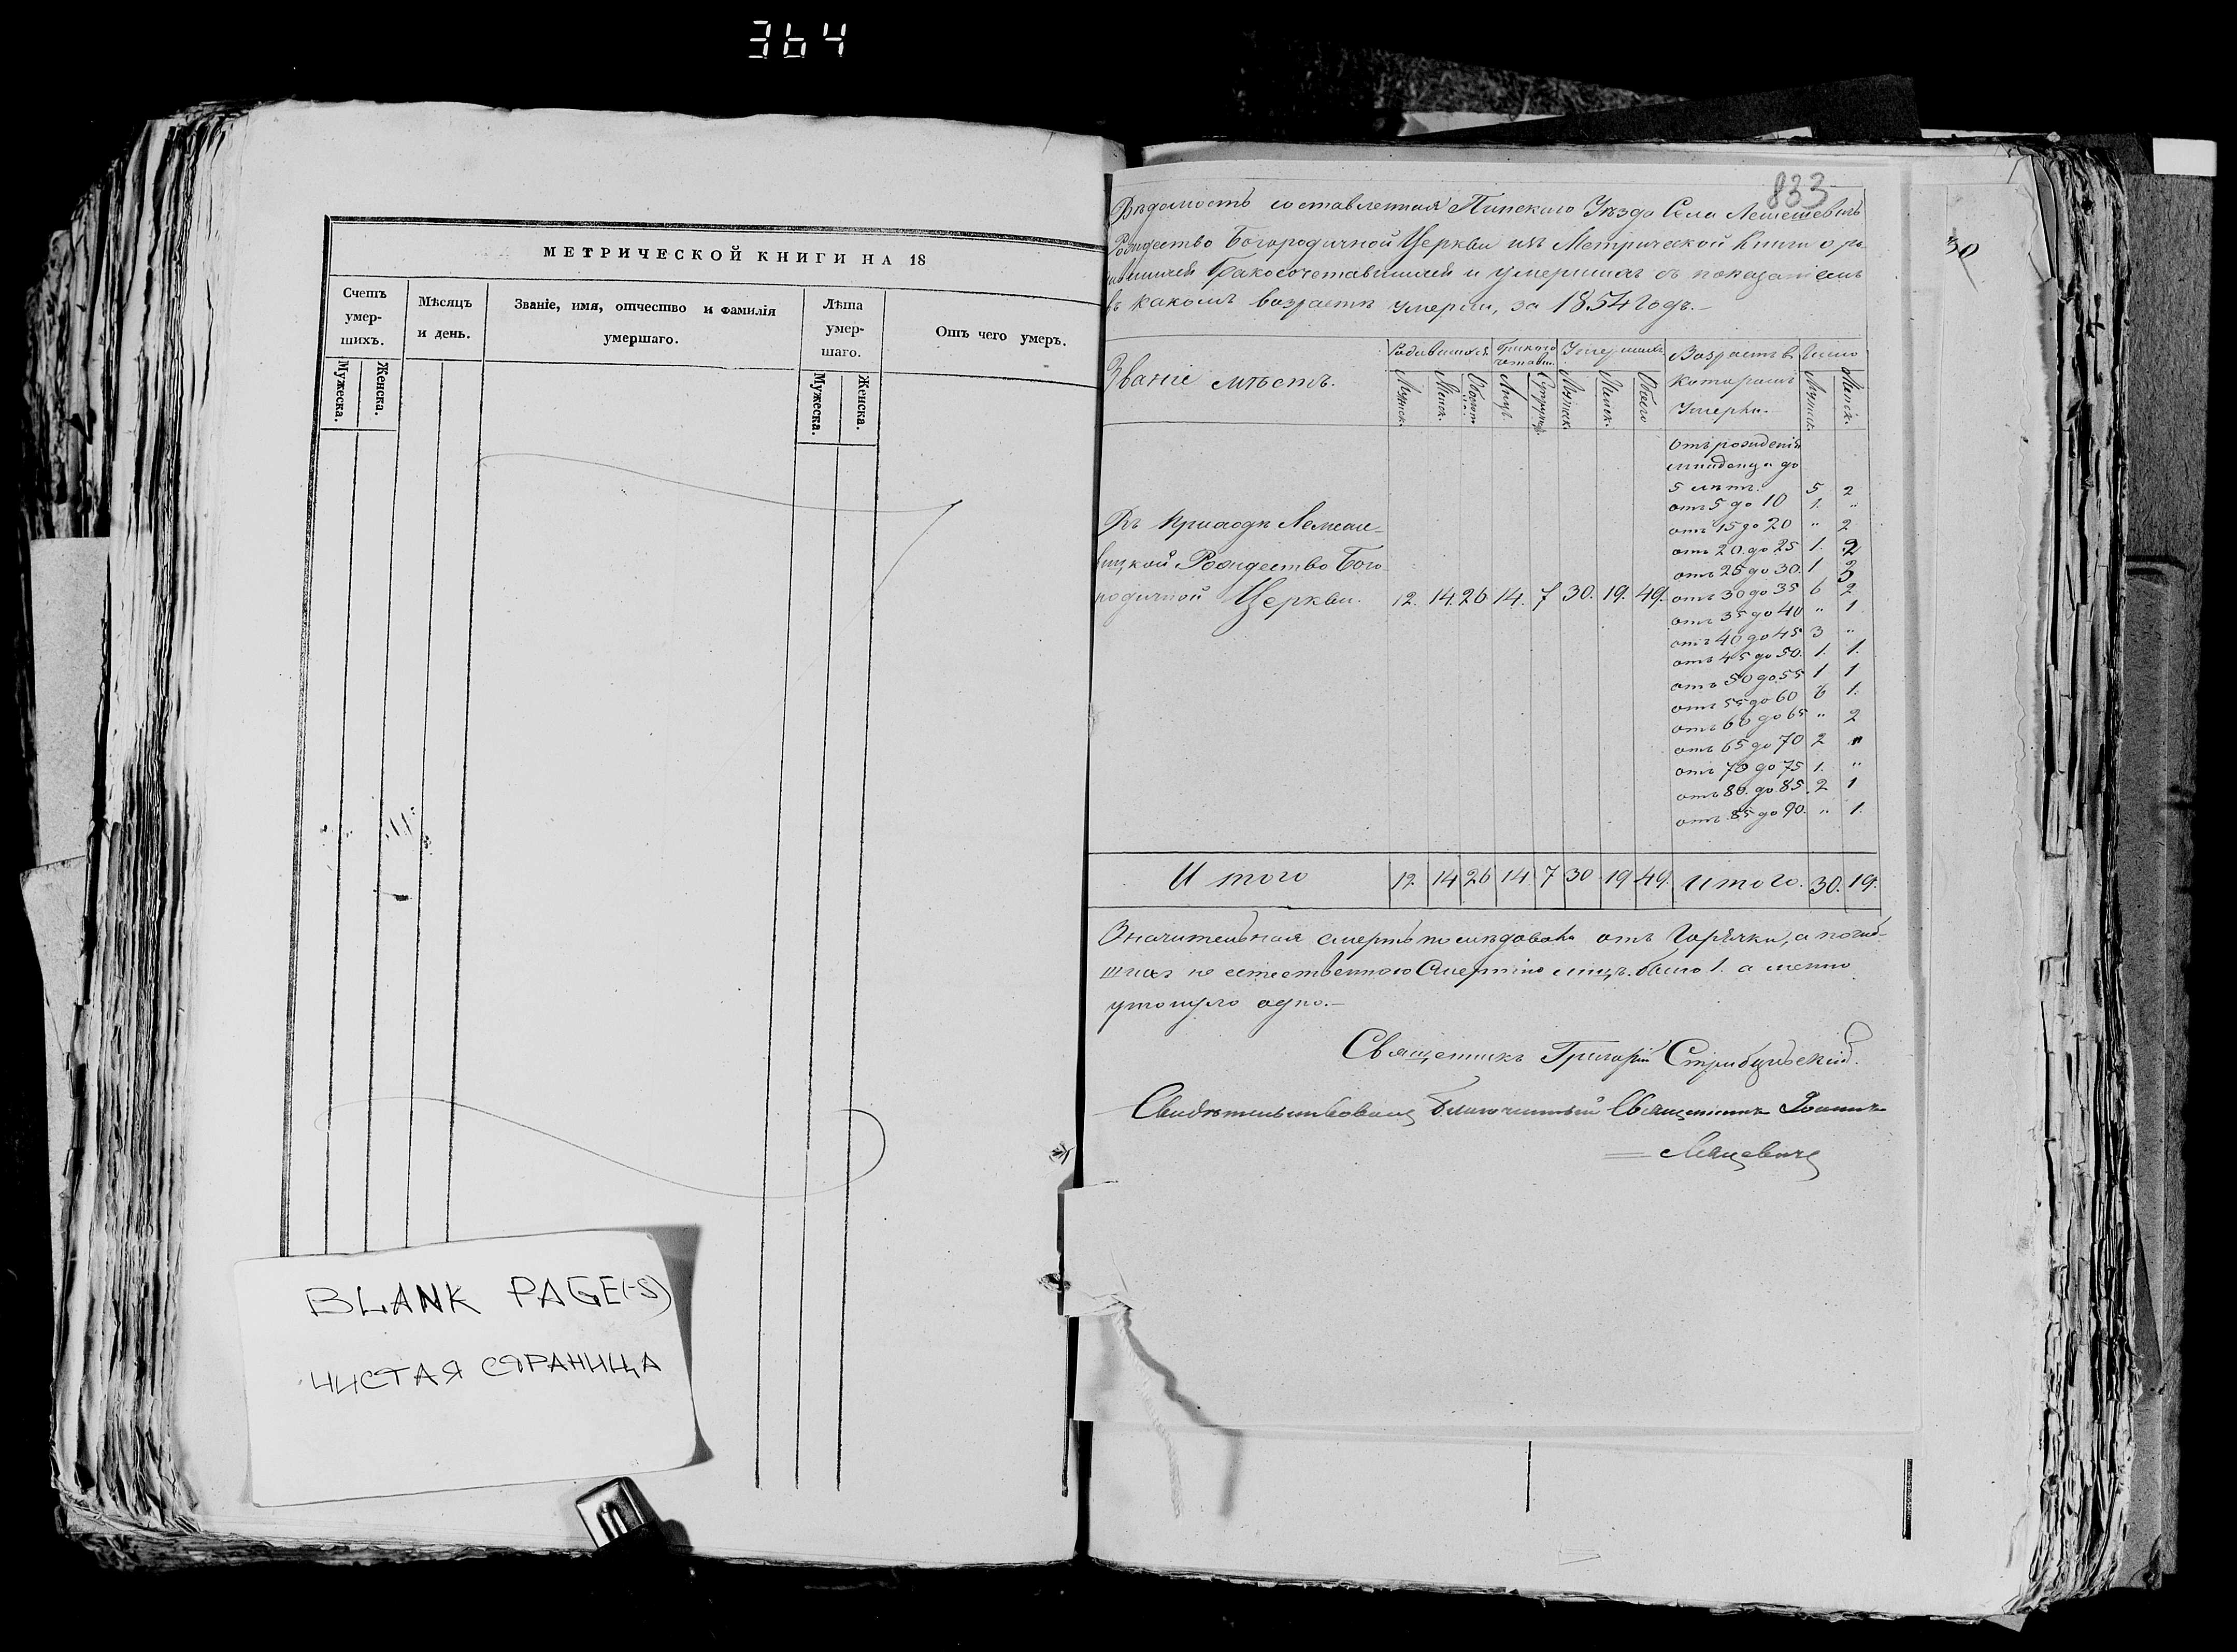 364
МЕТРИЧЕСКОЙ КНИГИ НА 18
Счетъ умершихъ.
Мужеска.
Женска.
Мѣсяцъ и день.
Званіе, имя, отчество и фамилія
умершаго.
Лѣта умершаго.
Мужеска.
Женска.
Отъ чего умеръ.
BLANK PAGE(-S)
ЧИСТАЯ СТРАНИЦА
833
30
Вѣдомость составленная Пинскаго Уѣзда Села
Рождество Богородичной Церкви изъ Метрической Книги о ро-
Бракосочетавшихся и умершихъ съ показаніемъ
въ какомъ возрастѣ умерли, за 1854 Годъ.-
Званіе мѣстъ.
Родившихся
Мужск.
Женск.
Обоего
Умершихъ
Мужск.
Женск.
Обоего
Возрастъ въ
которомъ
Умерли.
Число
Мужск.
Женск.
Отъ рожденія
младенца до
5 лѣтъ. 5 2
отъ 5 до 10 1. "
отъ 15 до 20 " 2
отъ 20 до 25 1. 2
отъ 25 до 30. 1 3
отъ 30 до 35 6 2
отъ 35 до 40 " 1
отъ 40 до 45 3 "
отъ 45 до 50. 1. 1.
отъ 50 до 55 1 1
отъ 55 до 60 6 1.
отъ 60 до 65 " 2
отъ 65 до 70 2 "
отъ 70 до 75 1. "
отъ 80. до 85. 2 1
отъ 85 до 90. " 1.
Въ приходѣ
Рождество Бого-
родичной Церкви. 12. 14. 26 14. 7 30. 19. 49.
Итого 12 14 26 14. 7 30 19 49. Итого. 30. 19.
Значительная смерть послѣдовала отъ Горячки, а погиб-
шихъ не естественною Смертію лицъ было 1. а именно
утонуло одно.-
Священникъ Григорій
Благочинный Священникъ